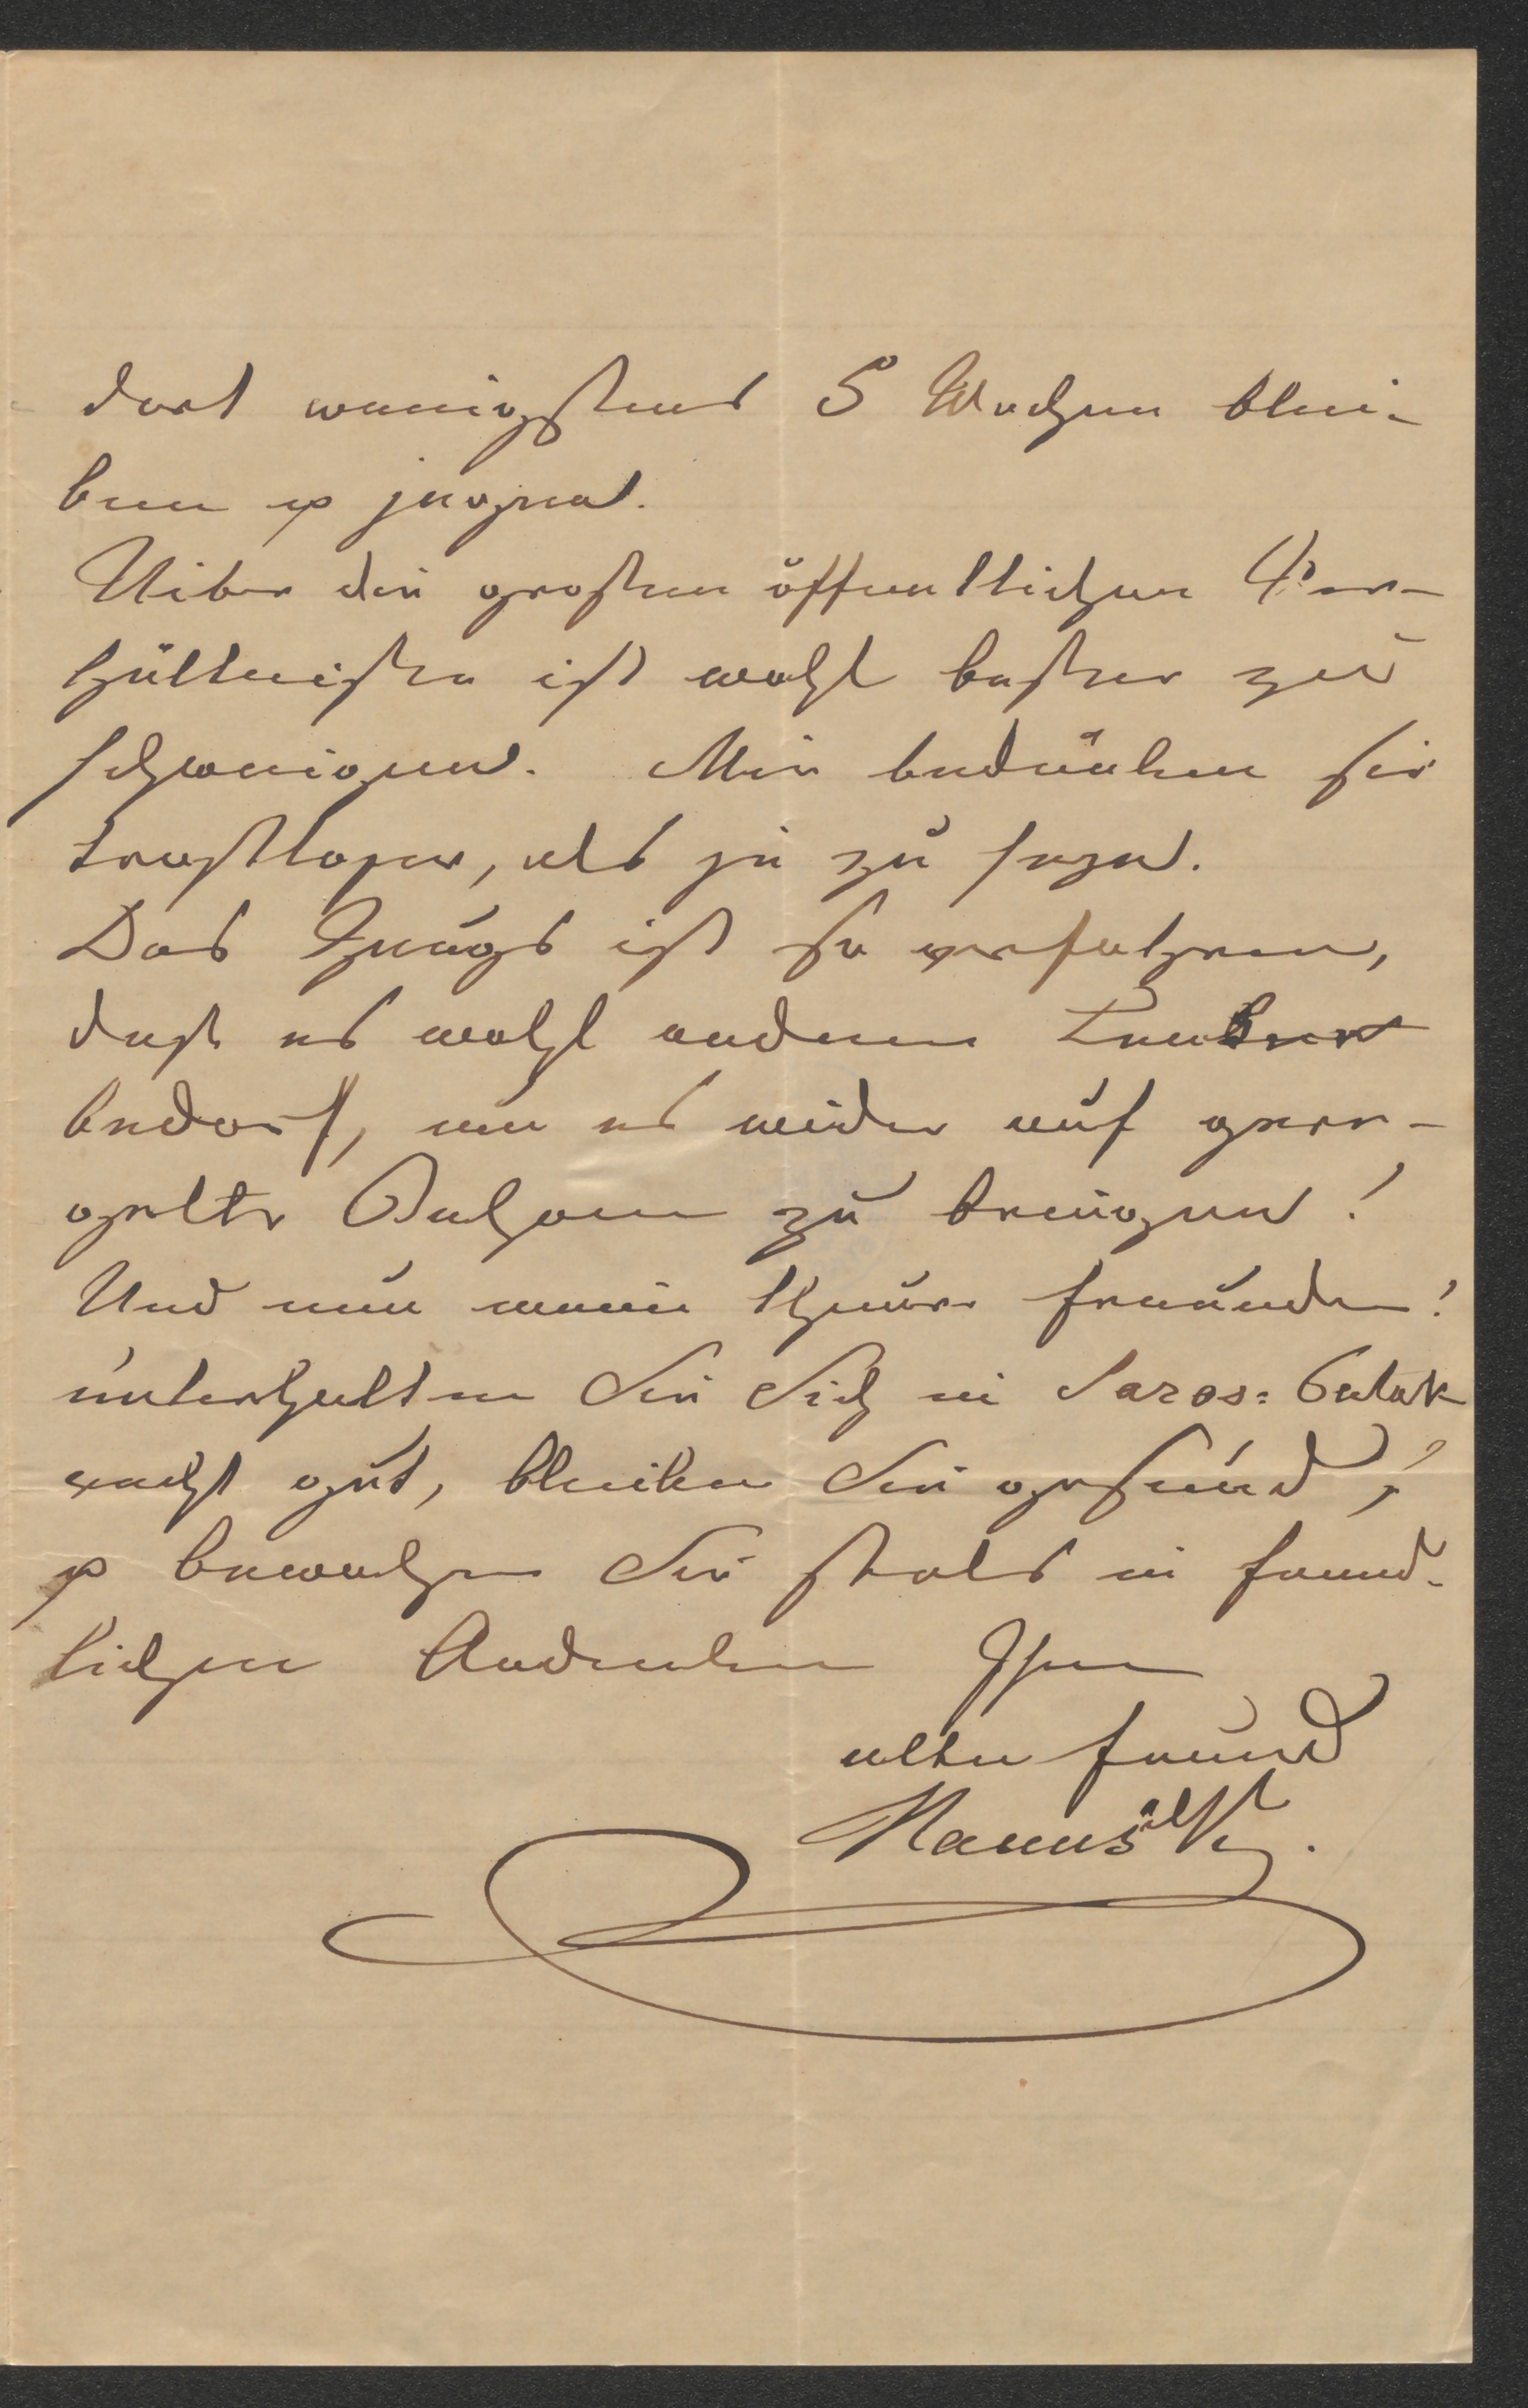 dort wenigstens 5 Wochen blei-
ben & jagen.
Uiber die großen öffentlichen Ver-
hältniße ist wohl beßer zu
schweigen. Mir bedünken sie
trostloser, als je zu sezn.
Das Zeugs ist so verfahren,
daß es wohl anderer Lenker
bedarf, um es wieder auf gere-
gelte Bahnen zu bringen!
Und nun mein theurer Freund!
unterhalten Sie Sich in Saros-Patak
recht gut, bleiben Sie gesund,
& bewahren Sie stets in freund-
lichem Andenken Ihren
alten Freund